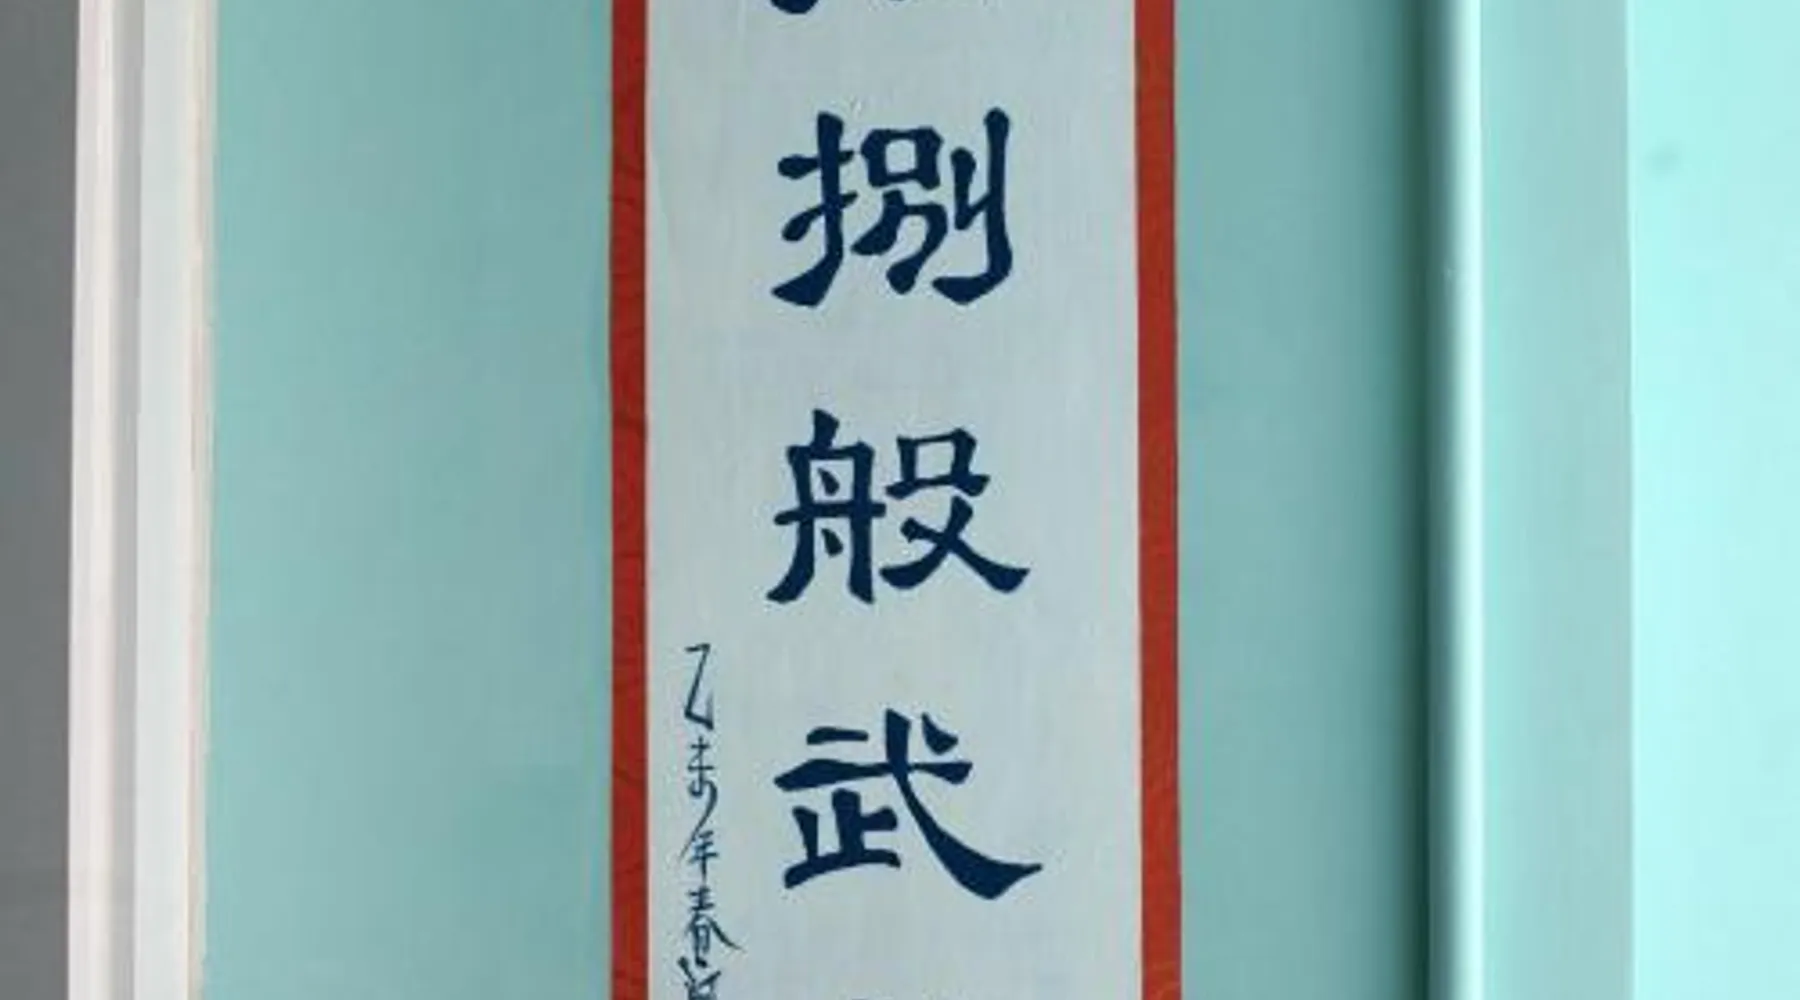 捌般武
乙未年春